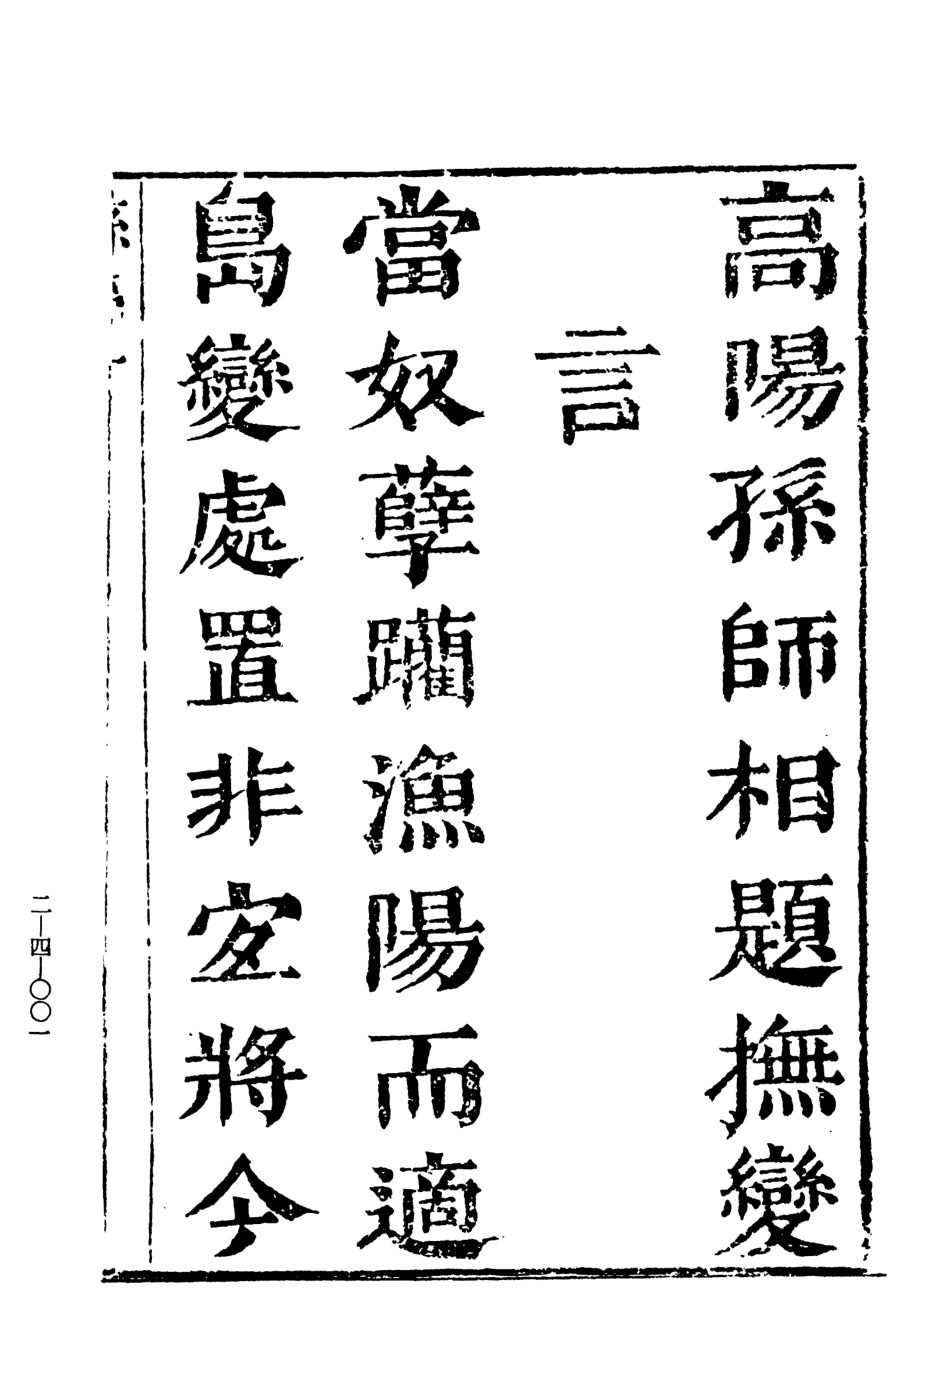 高陽孫師相題撫變
言
當奴孽躪漁陽而適
島變處置非宜將今
二—四—〇〇一